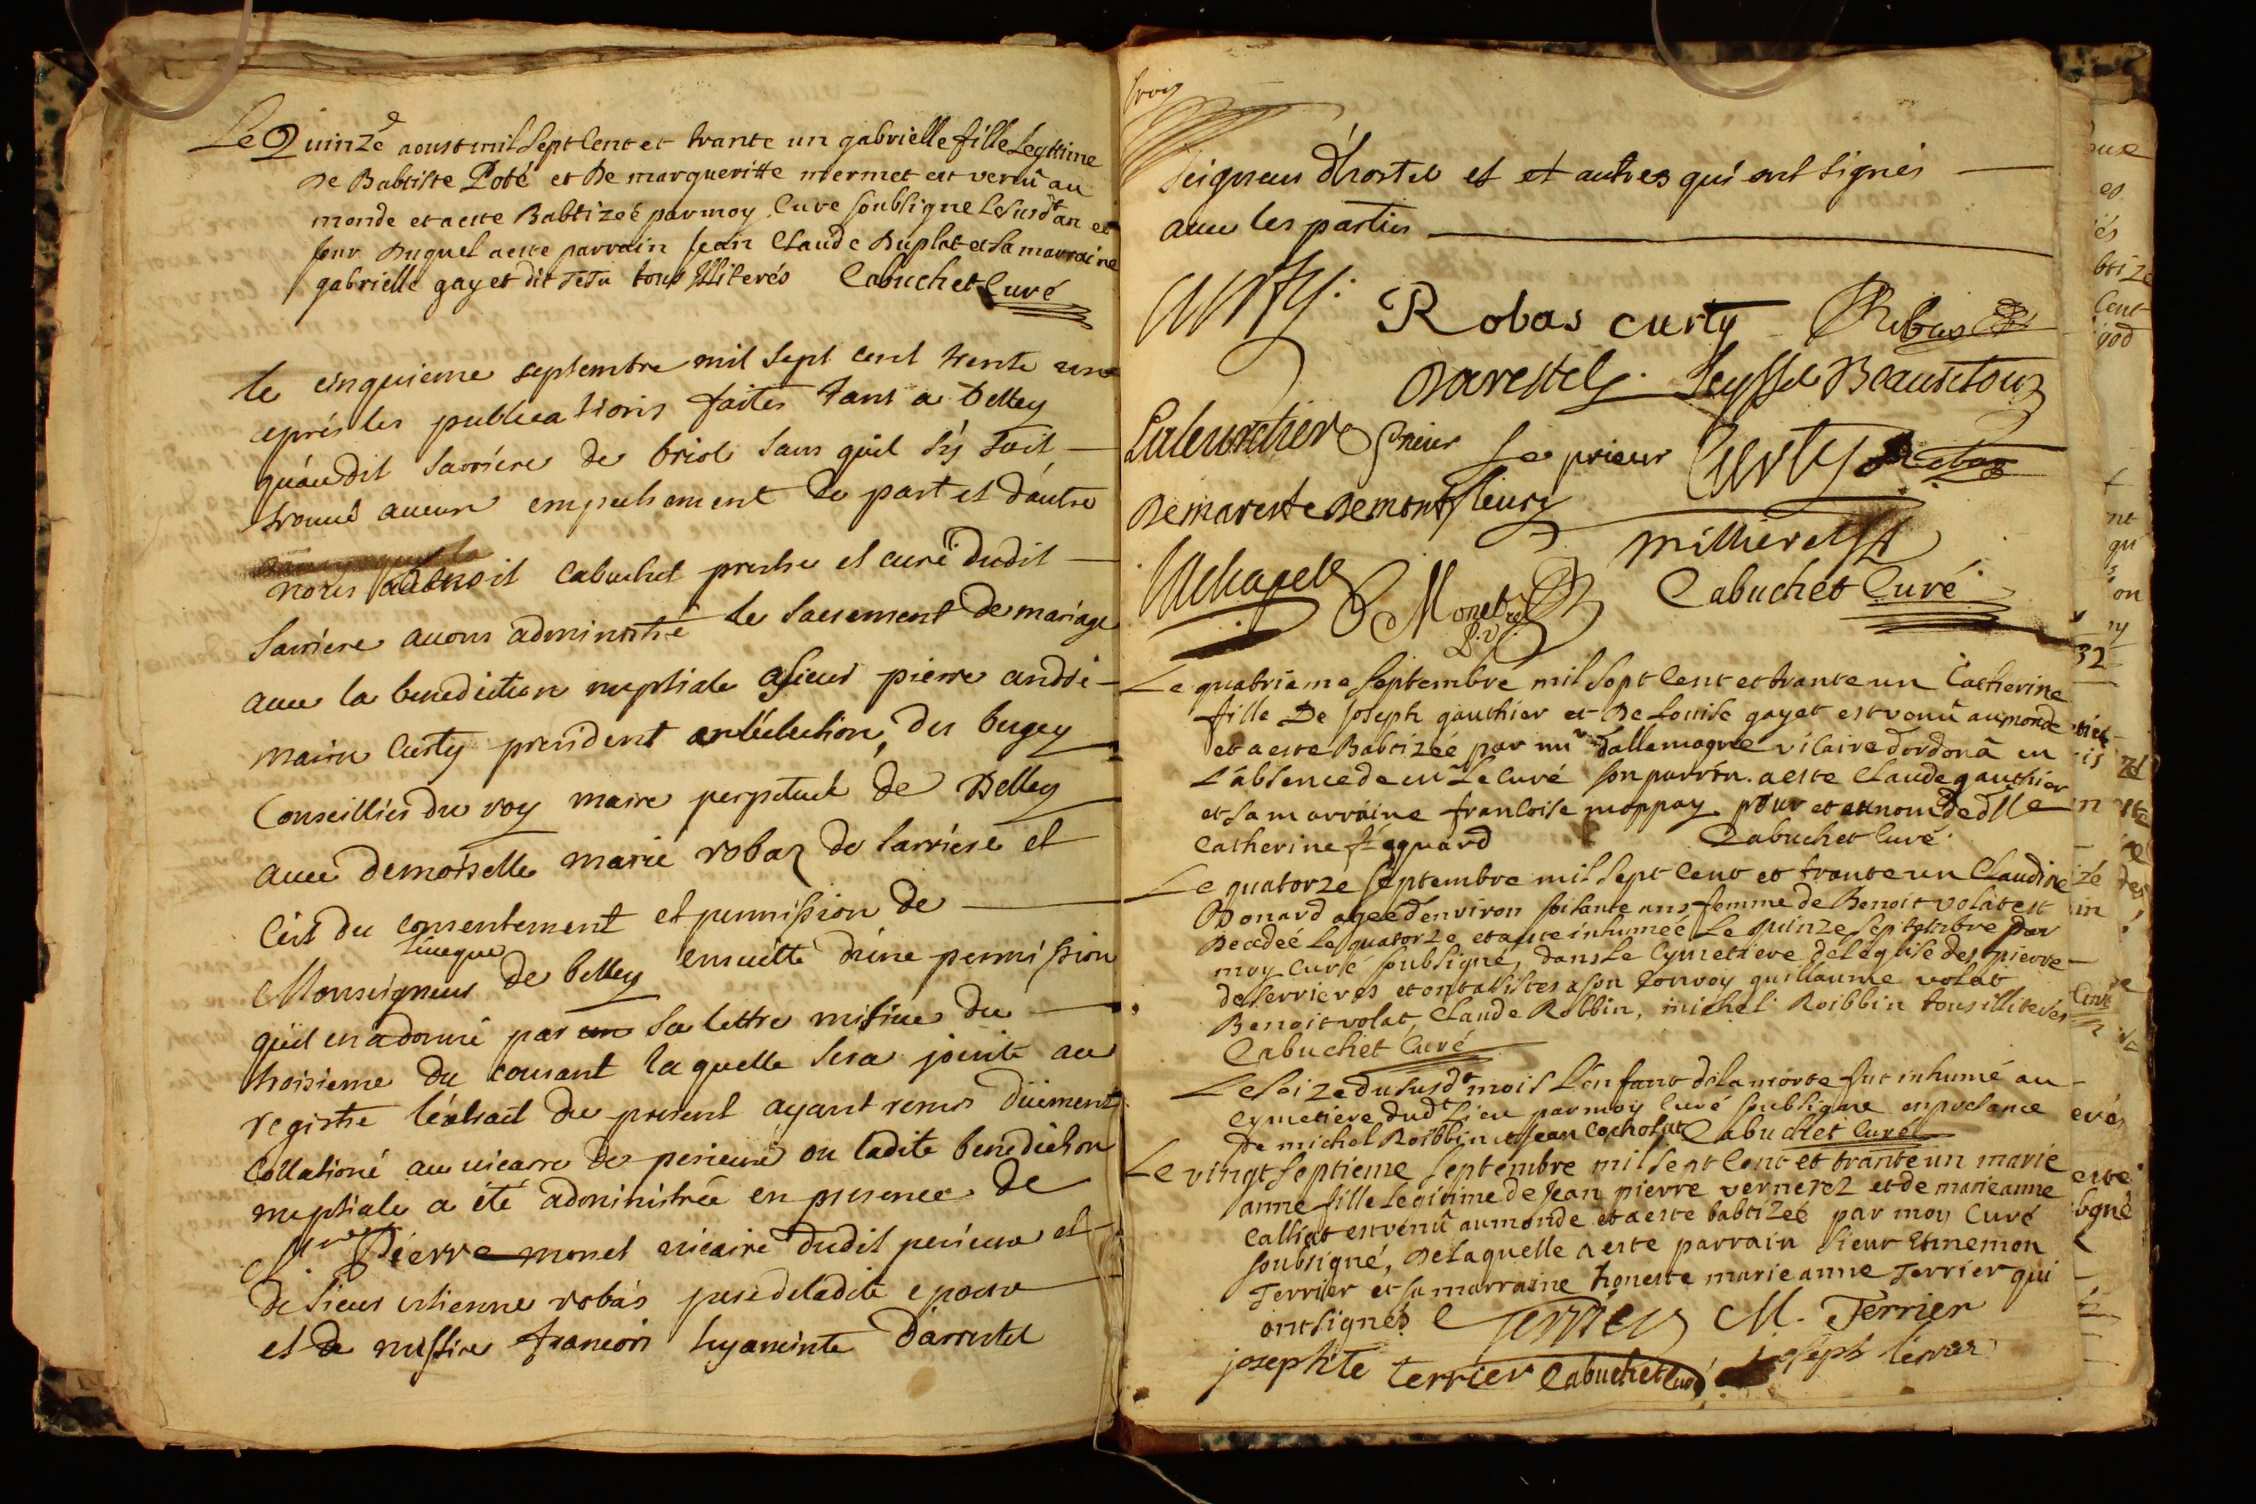 Le Quinze aoust mil sept Cent et trante un gabrielle fille Legitime
De Babtiste Poté et De margueritte mermet est venu au
monde et a este Babtizeé par moy Curé soubsigné Le susdt an et
jour Duquel a este parrain jean Claude Duplat et sa marraine
gabrielle gayet dit Tetu tous illiterés Cabuchet Curé
le cinquieme septembre mil sept cent trente une
aprés les publications faites tant a Belley
qu'audit sarriere de briol sans quil s'y soit
trouué aucun empeschement de part et d'autre
nous Cabuchet prestre et curé dudit
Sarriere auons administré le sacrement de mariage
auec la benediction nuptiale a sieur pierre anthe
maire Curty president en l'élection du bugey
Conseillier du roy maire perpetuel de Belley
auec demoiselle marie robaz de sarriere et
c'est du consentement et permission de
Monseigneur l'iueque de belley ensuitte d'une permission
qu'il en a donné par sa lettre misiue du
troisieme du courant laquelle sera jointe au
registre l'extrait du present ayant remis düement
Collationé au vicaire de perieux ou ladite benediction
nuptiale a été administrée en presence de
Mre Pierre monet vicaire dudit perieux et
de sieur estienne robas pere de ladite epouse
et de messire francois hyacinte Darestel
trois
Seigneur d'hostel et et autres qui ont signés
auec les parties
Curty Robas curty Robas
Darestel Seyssel Beauretour
prieur Le prieur Curty
Demareste Demontfleury
millieret
Michapel Monet Cabuchet Curé
P. v.
Le quatrieme septembre mil sept Cent et trante un Catherine
fille De joseph gauthier et De Louise gayet est venu au monde
et a este Babtizeé par mr Dallemagne vicaire dordona en
L'absence de mr Le Curé son parrin a este Claude gauthier
et sa marraine francoise moppay pour et au nom de dlle
Catherine seguard Cabuchet Curé
Le quatorze septembre mil sept Cent et trante un Claudine
Bonard ageé d'environ soisante ans femme de Benoit volat est
Decedeé Le quatorze et a esté inhumeé Le quinze septembre par
moy Curé soubsigné, dans Le Cymetiere de Leglise de st pierre
de serrieres et ont assistes a son Convoy guillaume volat
Benoit volat, Claude Robbin, michel Roibbin tous illiterés
Cabuchet Curé
Le seize du susdt mois L'enfant de la morte fut inhumé au
Cymetiere dudt Lieu par moy Curé soubsigné en presance
de michel Roibbin et jean Cochonat Cabuchet Curé
Le vingt septieme septembre mil sept Cent et trante un marie
anne fille Legitime de jean pierre vernerez et de marieanne
Calliat est venu au monde et a este babtizeé par moy Curé
soubsigné, De Laquelle a este parrain sieur
Terrier et sa marraine honeste marie anne Terrier qui
ont signés Terrier M. Terrier
josephte terrier Cabuchet Curé joseph